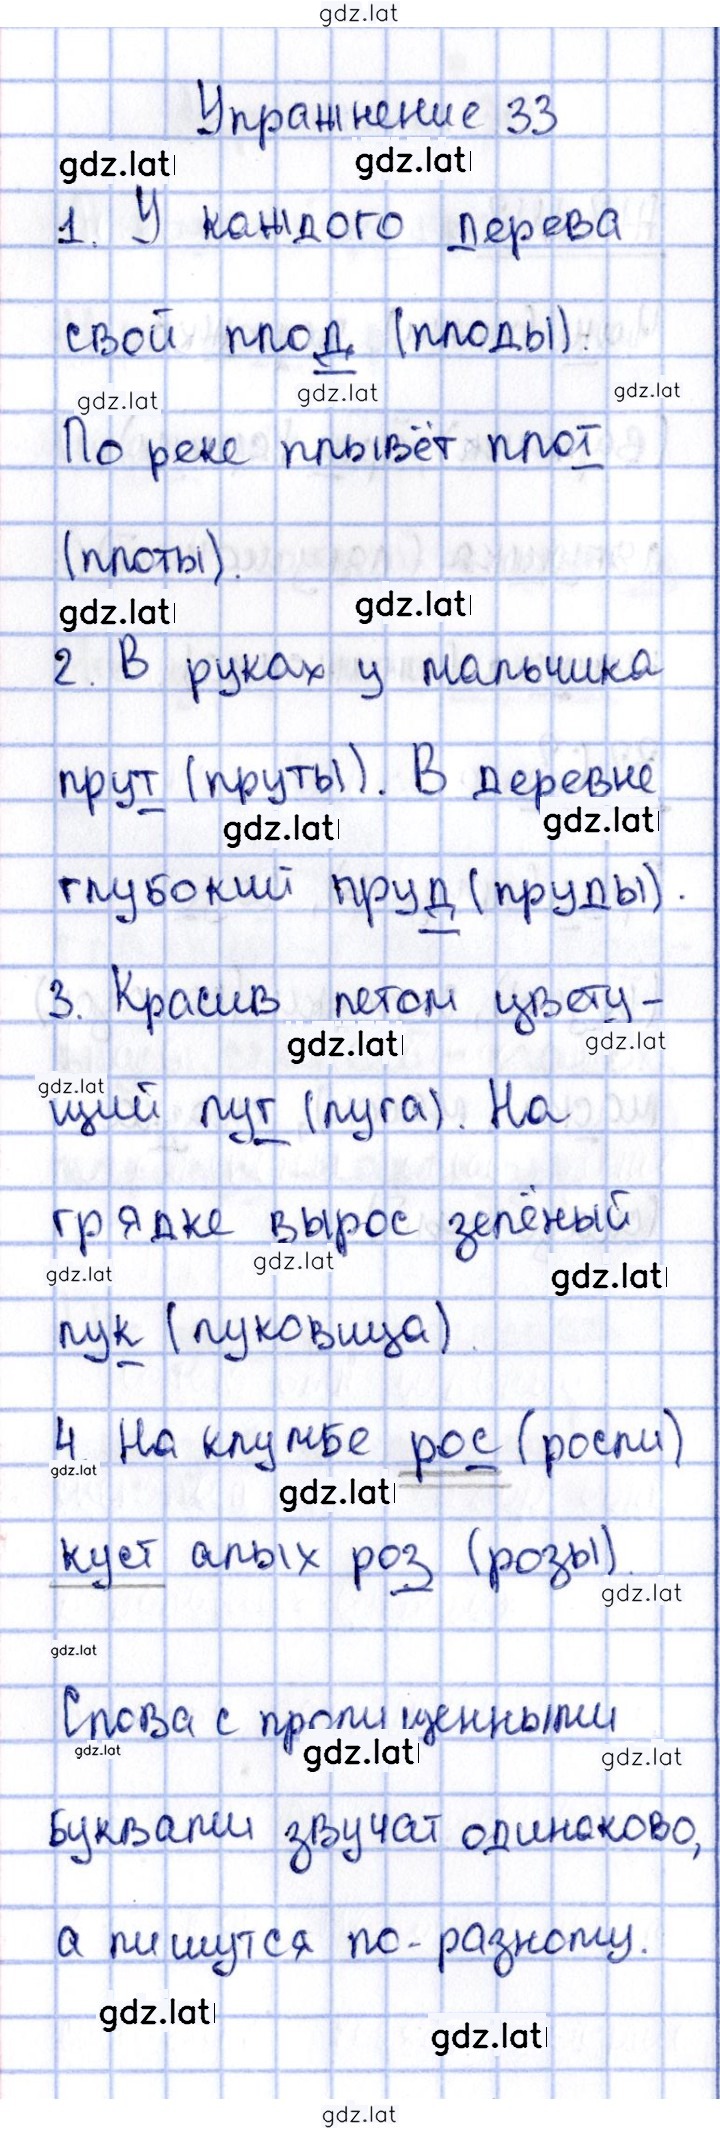 gdz.lat
Упражнение 33
gdz.lat gdz.lat
1. У каждого дерева
свой плод (плоды).
gdz.lat gdz.lat gdz.lat
По реке плывёт плот
(плоты).
gdz.lat gdz.lat
2. В руках у мальчика
прут (пруты). В деревне
gdz.lat gdz.lat
глубокий пруд (пруды).
3. Красив летом цвету-
gdz.lat gdz.lat
gdz.lat
щий луг (луга). На
грядке вырос зелёный
gdz.lat gdz.lat gdz.lat
лук (луковица).
4. На клумбе рос (росли)
gdz.lat gdz.lat
куст алых роз (розы).
gdz.lat
gdz.lat
Слова с пропущенными
gdz.lat gdz.lat gdz.lat
буквами звучат одинаково,
а пишутся по-разному.
gdz.lat gdz.lat
gdz.lat